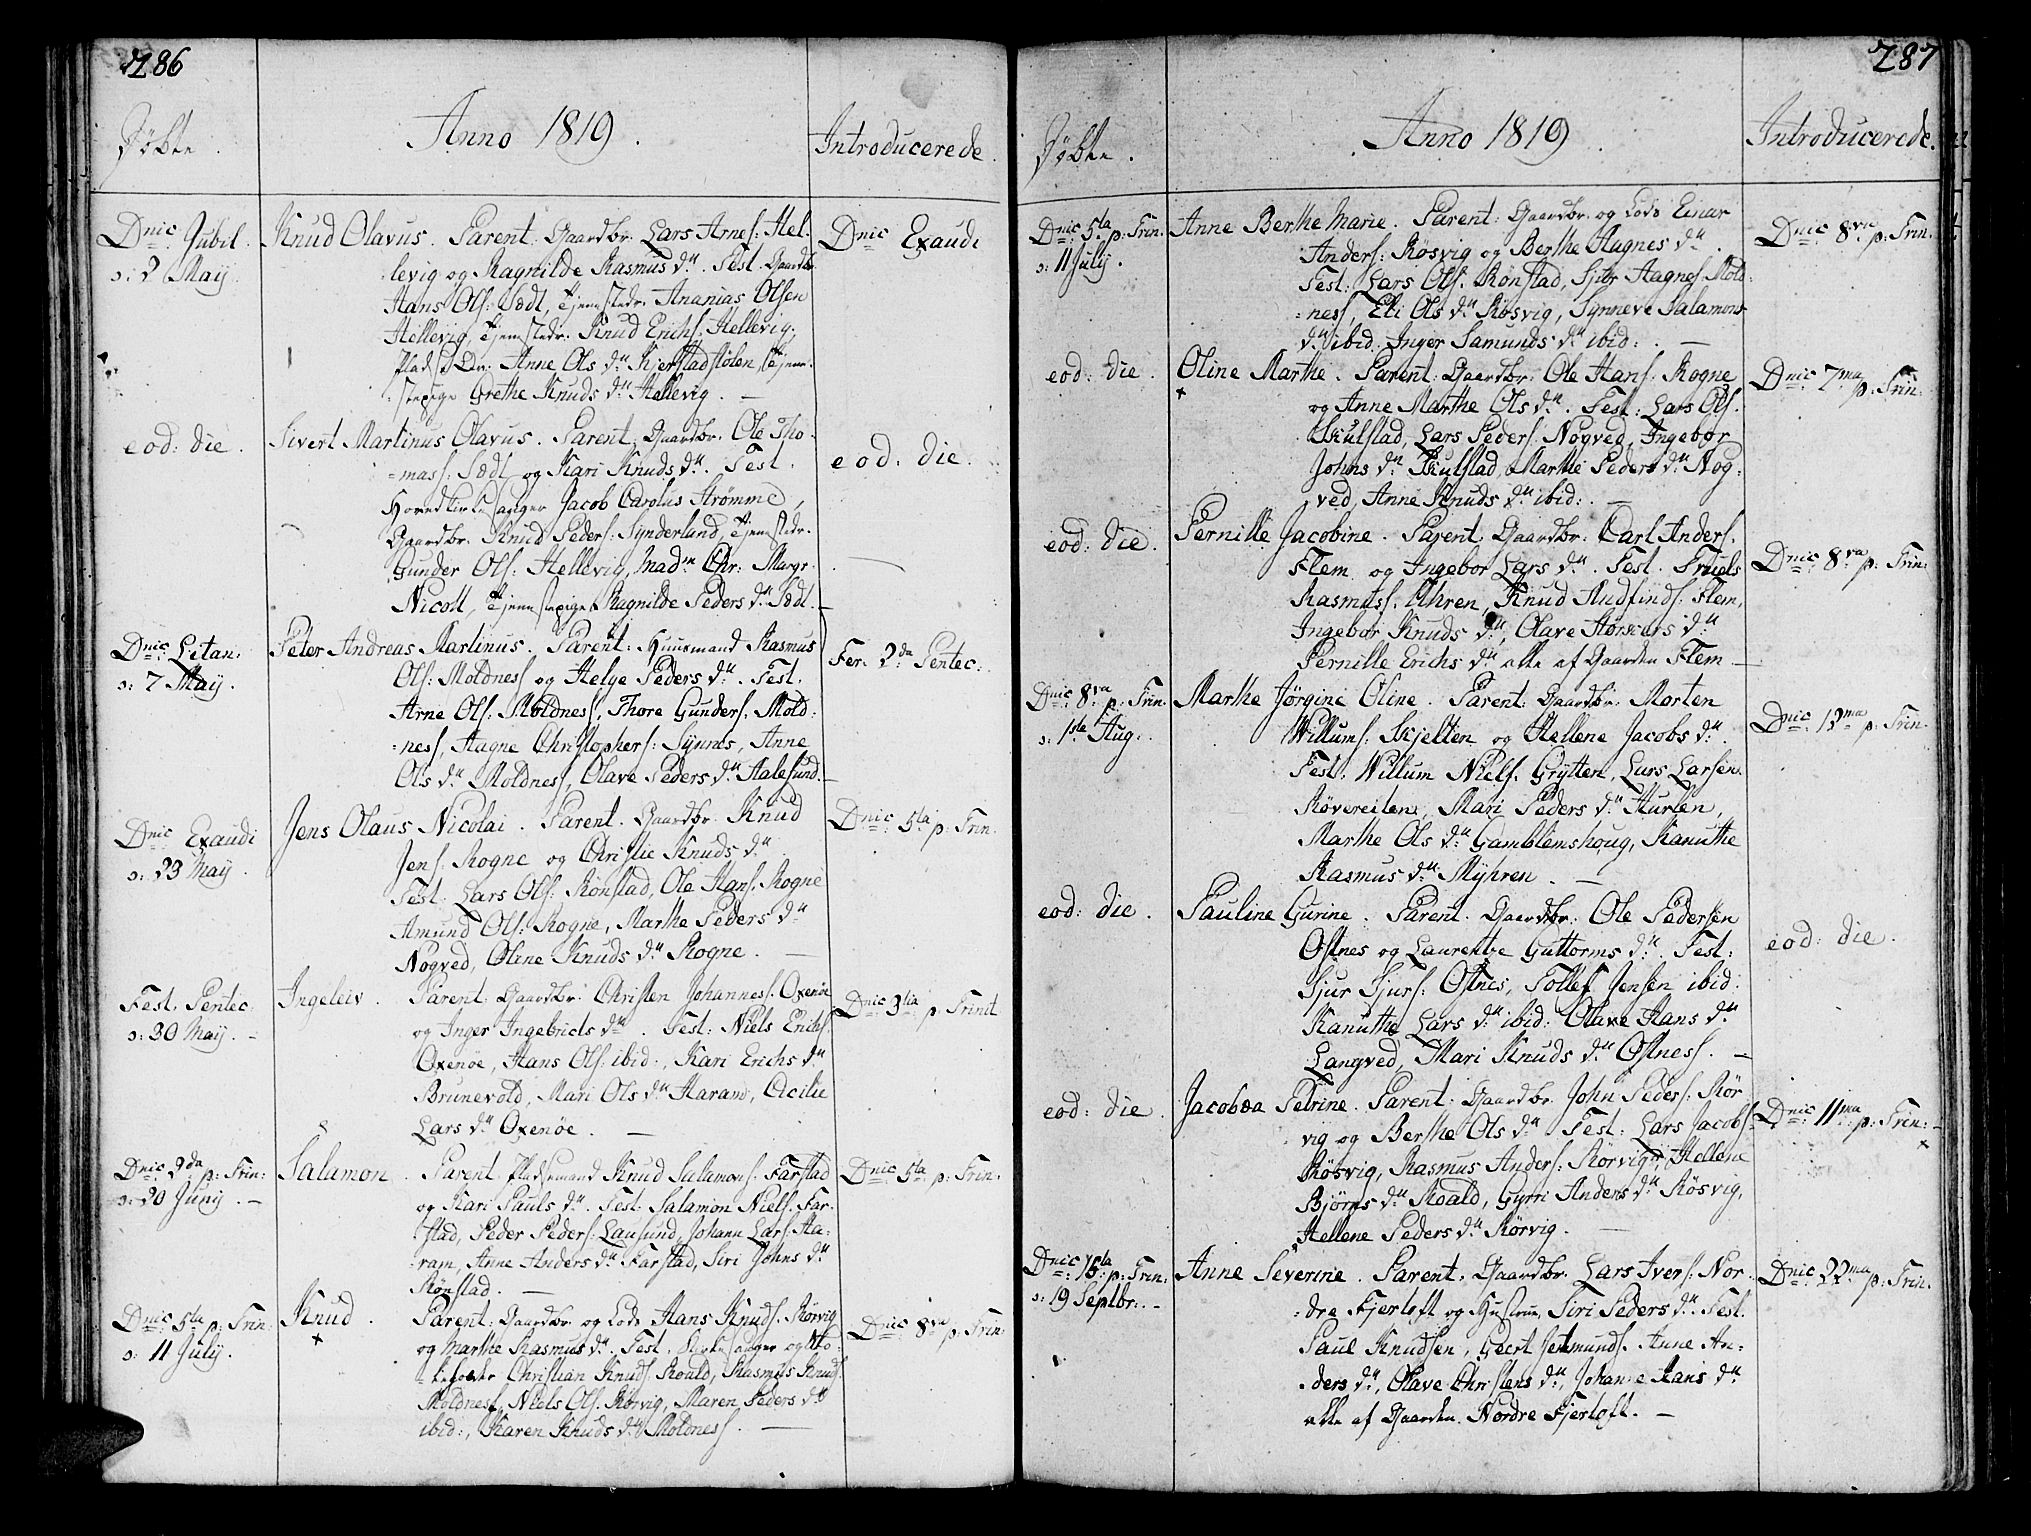 286
Døbte.
Anno 1819.
Introducerede.
Dnic Jubil.
ɔ: 2 Maÿ.
Knud Olavus. Parent: Gaardbr. Lars Arnes: Hel-
levig og Ragnilde Rasmus dtr. Test. Gaardbr.
Hans Ols: Sædt, Tjenestedr. Ananias Olsen
Hellevig, Tjenestedr. Knud Erichs. Hellevig.
Anne Ols dtr Kjerstadstølen, Tjene-
stepige Grethe Knuds dtr Hellevig. —
Dnic Exaudi
eod: die.
Sivert Martinus Olavus. Parent: Gaardbr. Ole Tho-
=mass: Sædt og Kari Knuds dtr. Test.
Hovedkirkesanger Jacob Carolus Strømme,
Gaardbr. Knud Peders: Synderland, Tjenestedr.
Gunder Ols. Hellevig, Madm Chr: Margr.
Nicoll, Tjenestepige Ragnilde Peders dtr Sædt. —
eod. die.
Dnic Letan.
ɔ: 7 Maÿ.
Peter Andreas Martinus. Parent: Huusmand Rasmus
Ols: Moldness og Helge Peders dtr. Test.
Arne Ols. Moldness, Thore Gunders. Mold:
=ness, Aagne Christophers: Synnes, Anne
Ols dtr Moldness, Olave Peders dtr Aalesund. —
Fer. 2da Pentec.
Dnic Exaudi
ɔ: 23 Maÿ.
Jens Olaus Nicolai. Parent. Gaardbr. Knud
Jens. Rogne og Christie Knuds dtr.
Test: Lars Ols: Rønstad, Ole Hans. Rogne
Amund Ols: Rogne, Marthe Peders dtr
Nogved, Oline Knuds dtr Rogne. —
Dnic 5ta p: Trin.
Fest. Pentec.
ɔ: 30 Maÿ. —
Ingeleiv. Parent. Gaardbr: Christen Johanness. Oxenøe
og Inger Ingebricts dtr. Test: Niels Erichs.
Oxenøe, Hans Ols: ibid:, Kari Erichs dtr
Brunevold, Mari Ols dtr Haram, Cicilie
Lars dtr Oxenøe. —
Dnic 3tia p: Trinit
Dnic 2da p: Trin:
ɔ: 20 Junÿ. —
Salamon. Parent. Pladsmand Knud Salamons. Farstad
og Kari Pauls dtr. Test. Salamon Niels. Far-
stad, Peder Peders: Lausund, Johan Lars. Ha-
ram, Anne Anders dtr Farstad, Siri Johns dtr
Rønstad. —
Dnic 5ta p: Trin.
Dnic 5ta p: Trin:
ɔ: 11 Julÿ.
Knud. Parent: Gaardbr og Lods Hans Knuds. Rørvig
+
og Marthe Rasmus dtr. Test. Kirkesanger og Sko-
Christian Knuds. Roald, Rasmus Knuds
Moldness, Niels Ols. Rørvig, Maren Peders dtr
ibid:, Karen Knuds dtr Moldness. —
Dnic 8va p: Trin:
287
Døbte.
Anno 1819.
Introducerede.
Dnic 5ta p: Trin.
ɔ: 11 Julÿ.
Anne Berthe Marie. Parent: Gaardbr. og Lods Einar
Anders: Røsvig og Berthe Aagnes dtr.
Test: Lars Ols. Rønstad, Aagnes. Mold:
=ness, Eli Ols dtr Røsvig, Synneve Salamons
dtr ibid. Inger Samunds dtr ibid: —
Dnic 8va p: Trin.
eod: die.
Oline Marthe. Parent: Gaardbr. Ole Hans. Rogne
+
og Anne Marthe Ols dtr. Test: Lars Ols.
Skulstad, Lars Peders. Nogved, Ingebor
Johns dtr Skulstad, Marthe Peders dtr Nog:
ved, Anne Knuds dtr ibid: —
Dnic 7ma p: Trin:
eod: die.
Pernille Jacobine. Parent: Gaardbr. Carl Anders.
Flem og Ingebor Lars dtr. Test. Truels
Rasmuss. Uhren, Knud Audfinds: Flem,
Ingebor Knuds dtr, Olave dtr
Pernille Erichs dtr alle af Gaarden Flem —
Dnic 8va p: Trin:
Dnic 8va p: Trin.
ɔ: 1ste Aug:
Marthe Jørgine Oline. Parent: Gaardbr. Morten
Willums: Skjelten og Hellene Jacobs dtr.
Test. Willum Niels. Grytten, Lars Larsen
Røvereiten, Mari Peders dtr Hurlen,
Marthe Ols dtr Gamblemshoug, Kanuthe
Rasmus dtr Myhren. —
Dnic 12ma p: Trin.
eod: die.
Pauline Gurine. Parent. Gaardbr: Ole Pedersen
Ostnes og Laurentze Guttorms dtr. Test:
Sjur Sjurs: Ostnes, Tollef Jensen ibid:
Kanuthe Lars dtr ibid: Olave Hans dtr
Langved, Mari Knuds dtr Ostness. —
eod: die.
eod: die.
Jacobæa Petrine. Parent: Gaardbr. John Peders: Rør
vig og Berthe Ols dtr. Test: Lars Jacobs=
Røsvig, Rasmus Anders: Rørvig, Hellene
Bjørns dtr Roald, Gyrri Anders dtr Røsvig,
Hellene Peders dtr Rørvig. —
Dnic 11ma p: Trin: —
+
Dnic 15ta p: Trin:
ɔ: 19 Septbr: —
Anne Severine. Parent. Gaardbr. Lars Ivers: Nor-
:dre Fjertoft og Hustrue Siri Peders dtr. Test.
Paul Knudsen, Geert Jetmunds. Anne An-
:ders dtr, Olave Christens dtr, Johanne Hans dtr
alle af Gaarden Nordre Fjertoft. —
Dnic 22ma p: Trin.